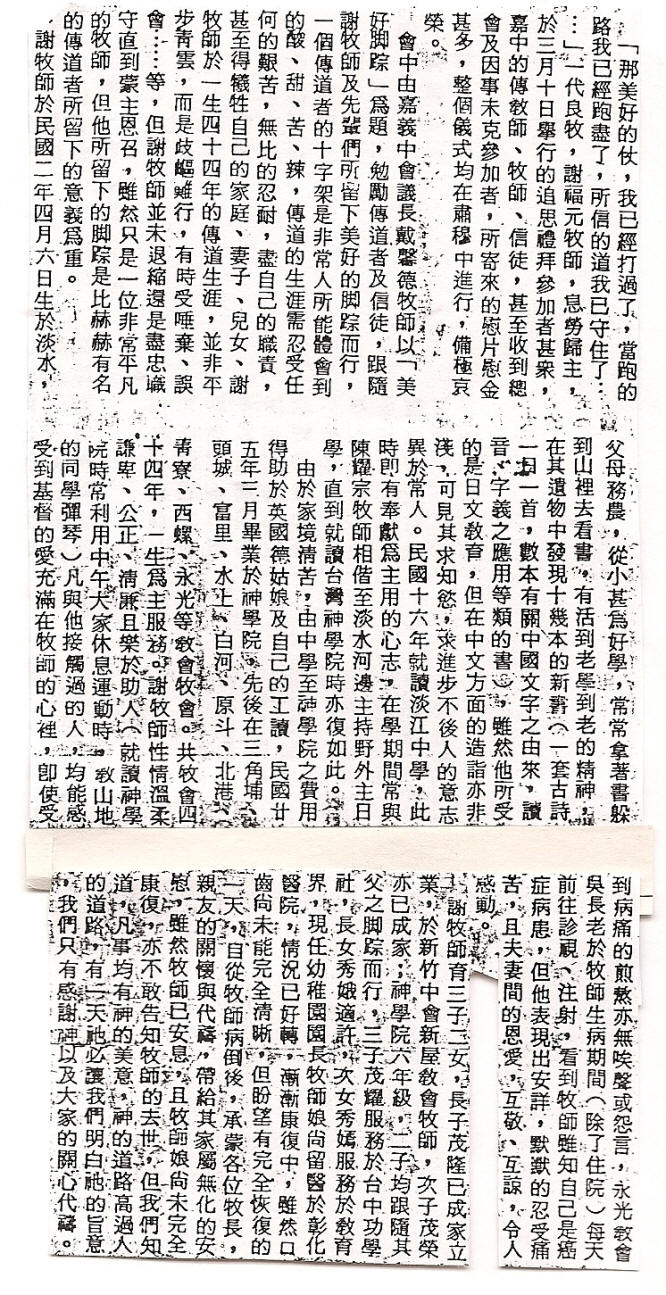 「那美好的仗，我已經打過了，當跑的
路我已經跑盡了，所信的道我已守住了…
…」一代良牧，謝福元牧師，息勞歸主，
於三月十日舉行的追思禮拜參加者甚衆，
嘉中的傳教師、牧師、信徒，甚至收到總
會及因事未克參加者，所寄來的慰片慰金
甚多，整個儀式均在肅穆中進行，備極哀
榮。
會中由嘉義中會議長戴馨德牧師以「美
好脚踪」爲題，勉勵傳道者及信徒，跟隨
謝牧師及先輩們所留下美好的脚踪而行，
一個傳道者的十字架是非常人所能體會到
的酸、甜、苦、辣，傳道的生涯需忍受任
何的艱苦，無比的忍耐，盡自己的職責，
甚至得犧牲自己的家庭、妻子、兒女、謝
牧師於一生四十四年的傳道生涯，並非平
步靑雲，而是歧嶇難行，有時受唾棄、誤
會……等，但謝牧師並未退縮還是盡忠職
守直到蒙主恩召，雖然只是一位非常平凡
的牧師，但他所留下的脚踪是比赫赫有名
的傳道者所留下的意義爲重。
謝牧師於民國二年四月六日生於淡水，
父母務農，從小甚爲好學，常常拿著書躱
到山裡去看書，有活到老學到老的精神，
在其遺物中發現十幾本的新書（一套古詩
一日一首，數本有關中國文字之由來，讀
音、字義之應用等類的書），雖然他所受
的是日文敎育，但在中文方面的造詣亦非
淺，可見其求知慾，求進步不後人的意志
異於常人。民國十六年就讀淡江中學，此
時即有奉獻爲主用的心志，在學期間常與
陳耀宗牧師相偕至淡水河邊主持野外主日
學，直到就讀台灣神學院時亦復如此。
由於家境清苦，由中學至神學院之費用
得助於英國德姑娘及自己的工讀，民國廿
五年三月畢業於神學院。先後在三角埔、
頭城、富里、水上、白河、原斗、北港、
靑寮、西螺、永光等敎會牧會。共牧會四
十四年，一生爲主服務。謝牧師性情溫柔
謙卑、公正、清廉且樂於助人（就讀神學
院時常利用中午大家休息運動時，敎山地
的同學彈琴）凡與他接觸過的人，均能感
受到基督的愛充滿在牧師的心裡，即使受
到病痛的煎熬亦無唉聲或怨言，永光敎會
吳長老於牧師生病期間（除了住院）每天
前往診視、注射，看到牧師雖知自己是癌
症病患，但他表現出安詳，默默的忍受痛
苦，且夫妻間的恩愛，互敬、互諒，令人
感動。
謝牧師育三子二女，長子茂隆已成家立
業，於新竹中會新屋敎會牧師，次子茂榮
亦已成家；神學院六年級，二子均跟隨其
父之脚踪而行，三子茂耀服務於台中功學
社，長女秀娥適許，次女秀嬌服務於敎育
界，現任幼稚園園長牧師娘尚留醫於彰化
醫院，情況已好轉，漸漸康復中，雖然口
齒尚未能完全清晰，但盼望有完全恢復的
一天，自從牧師病倒後，承蒙各位牧長，
親友的關懷與代禱，帶給其家屬無化的安
慰，雖然牧師已安息，且牧師娘尚未完全
康復，亦不敢告知牧師的去世，但我們知
道，凡事均有神的美意，神的道路高過人
的道路，有一天祂必讓我們明白祂的旨意
，我們只有感謝神以及大家的關心代禱。